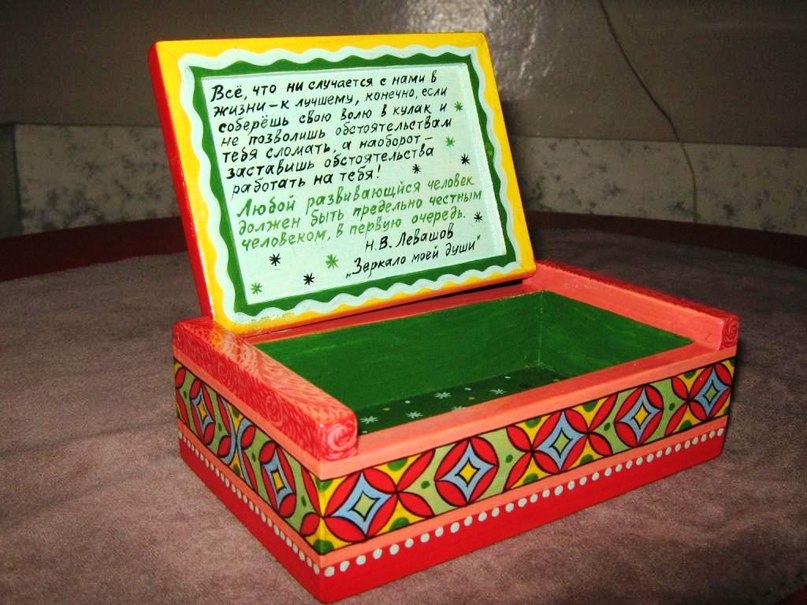 Всё, что ни случается с нами в
жизни – к лучшему, конечно, если
соберёшь свою волю в кулак и
не позволишь обстоятельствам
тебя сломать, а наоборот –
заставишь обстоятельства
работать на тебя!
Любой развивающийся человек
должен быть предельно честным
человеком, в первую очередь.
Н.В. Левашов
„Зеркало моей души"